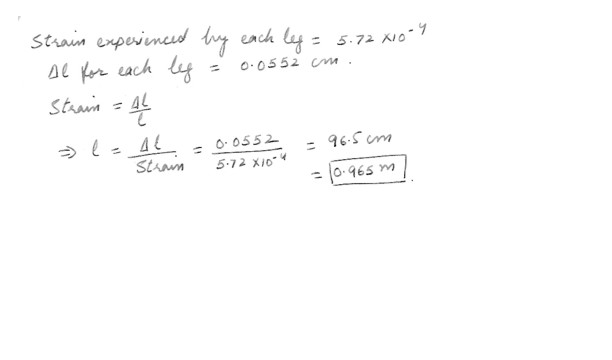 Strain experienced by each leg = 5.72 × 10⁻⁴
Δl for each leg = 0.0552 cm.
Strain = Δl/l
⇒ l = Δl/Strain = 0.0552/5.72 × 10⁻⁴ = 96.5 cm
= 0.965 m.